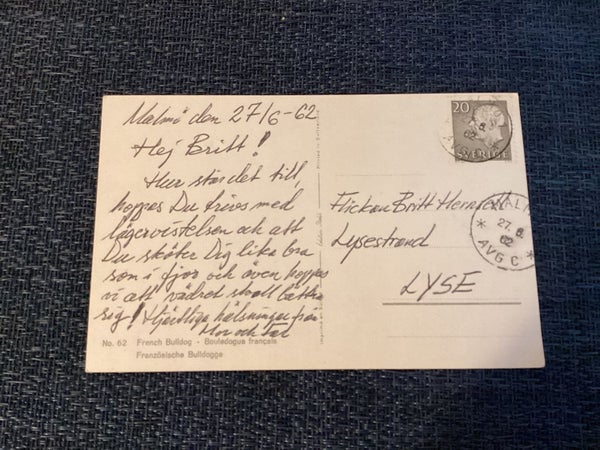 Malmö den 27/6-62
Hej Britt!
Hur står det till,
hoppas Du trives med
lägervistelsen och att
Du sköter Dig lika bra
som i fjor och även hoppas
vi att vädret skall bättra
sig! Hjärtliga hälsningar från
Mor och Far
No. 62 French Bulldog - Bouledogue français
Französische Bulldogge
20
SVERIGE
Flickan Britt
Lysestrand
LYSE
27. 6.
62
AVG C